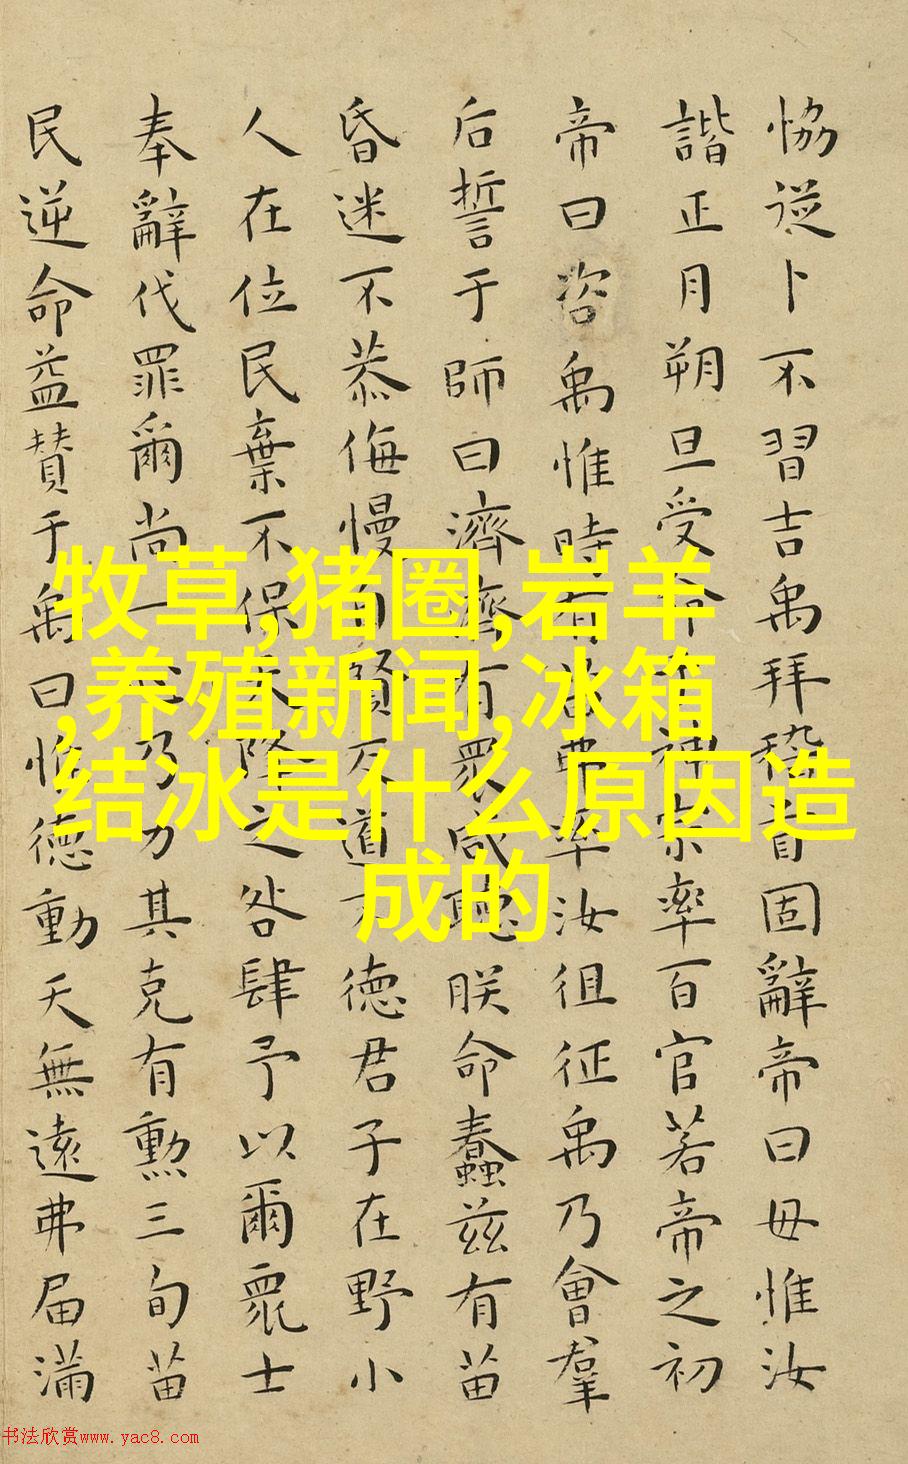 恊從卜不習吉禹拜稽首固辭帝曰毋惟汝
諧正月朔旦受命于神宗率百官若帝之初
帝曰咨禹惟時有苗弗率汝徂征禹乃會羣
后誓于師曰濟濟有衆咸聽朕命蠢兹有苗
昏迷不恭侮慢自賢反道敗德君子在野小
人在位民棄不保天降之咎肆予以爾衆士
奉辭伐罪爾尚一心乃力其克有勲三旬苗
民逆命益贊于禹曰惟德動天無遠弗届滿
牧草,猪圈,岩羊
,养殖新闻,冰箱
结冰是什么原因造
成的
书法欣赏www.yac8.com